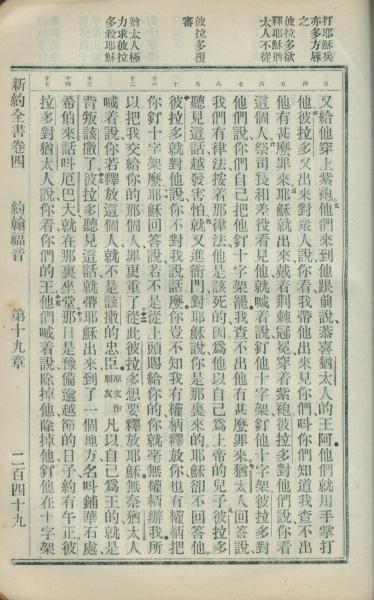 打耶穌兵
亦多方辱
之
彼拉多欲
釋耶穌猶
太人不從
彼拉多復
審
猶太人極
力求彼拉
多殺耶穌
三
四
五
六
七
八
九
十
十一
十二
十三
十四
十五
又給他穿上紫袍他們來到他跟前說恭喜猶太人的王阿他們就用手掌打
他彼拉多又出來對衆人說你看我帶他出來見你們呌你們知道我查不出
他有甚麽罪來耶穌就出來戴着荆棘冠冕穿着紫袍彼拉多對他們說你看
這個人祭司長和差役看見他就喊着說釘他十字架釘他十字架彼拉多對
他們說你們自己把他釘十字架罷我查不出他有甚麽罪來猶太人回答說
我們有律法按着那律法他是該死的因爲他以自己爲上帝的兒子彼拉多
聽見這話越發害怕就又進衙門對耶穌說你是那裏來的耶穌卻不回答他
彼拉多就對他說你不對我說話麽你豈不知我有權柄釋放你也有權柄把
你釘十字架麽耶穌回答說若不是從上頭賜給你的你就毫無權柄辦我所
以把我交給你的那個人罪更重了從此彼拉多想要釋放耶穌無奈猶太人
喊着說你若釋放這個人就不是該撒的忠臣原文作朋友凡以自己爲王的就是
背叛該撒了彼拉多聽見這話就帶耶穌出來到了一個地方名呌鋪華石處
希伯來話呌厄巴大就在那裏坐堂那日是豫備逾越節的日子約有午正彼
拉多對猶太人說你看你們的王他們喊着說除掉他除掉他釘他在十字架
新約全書卷四 約翰福音 第十九章 二百四十九